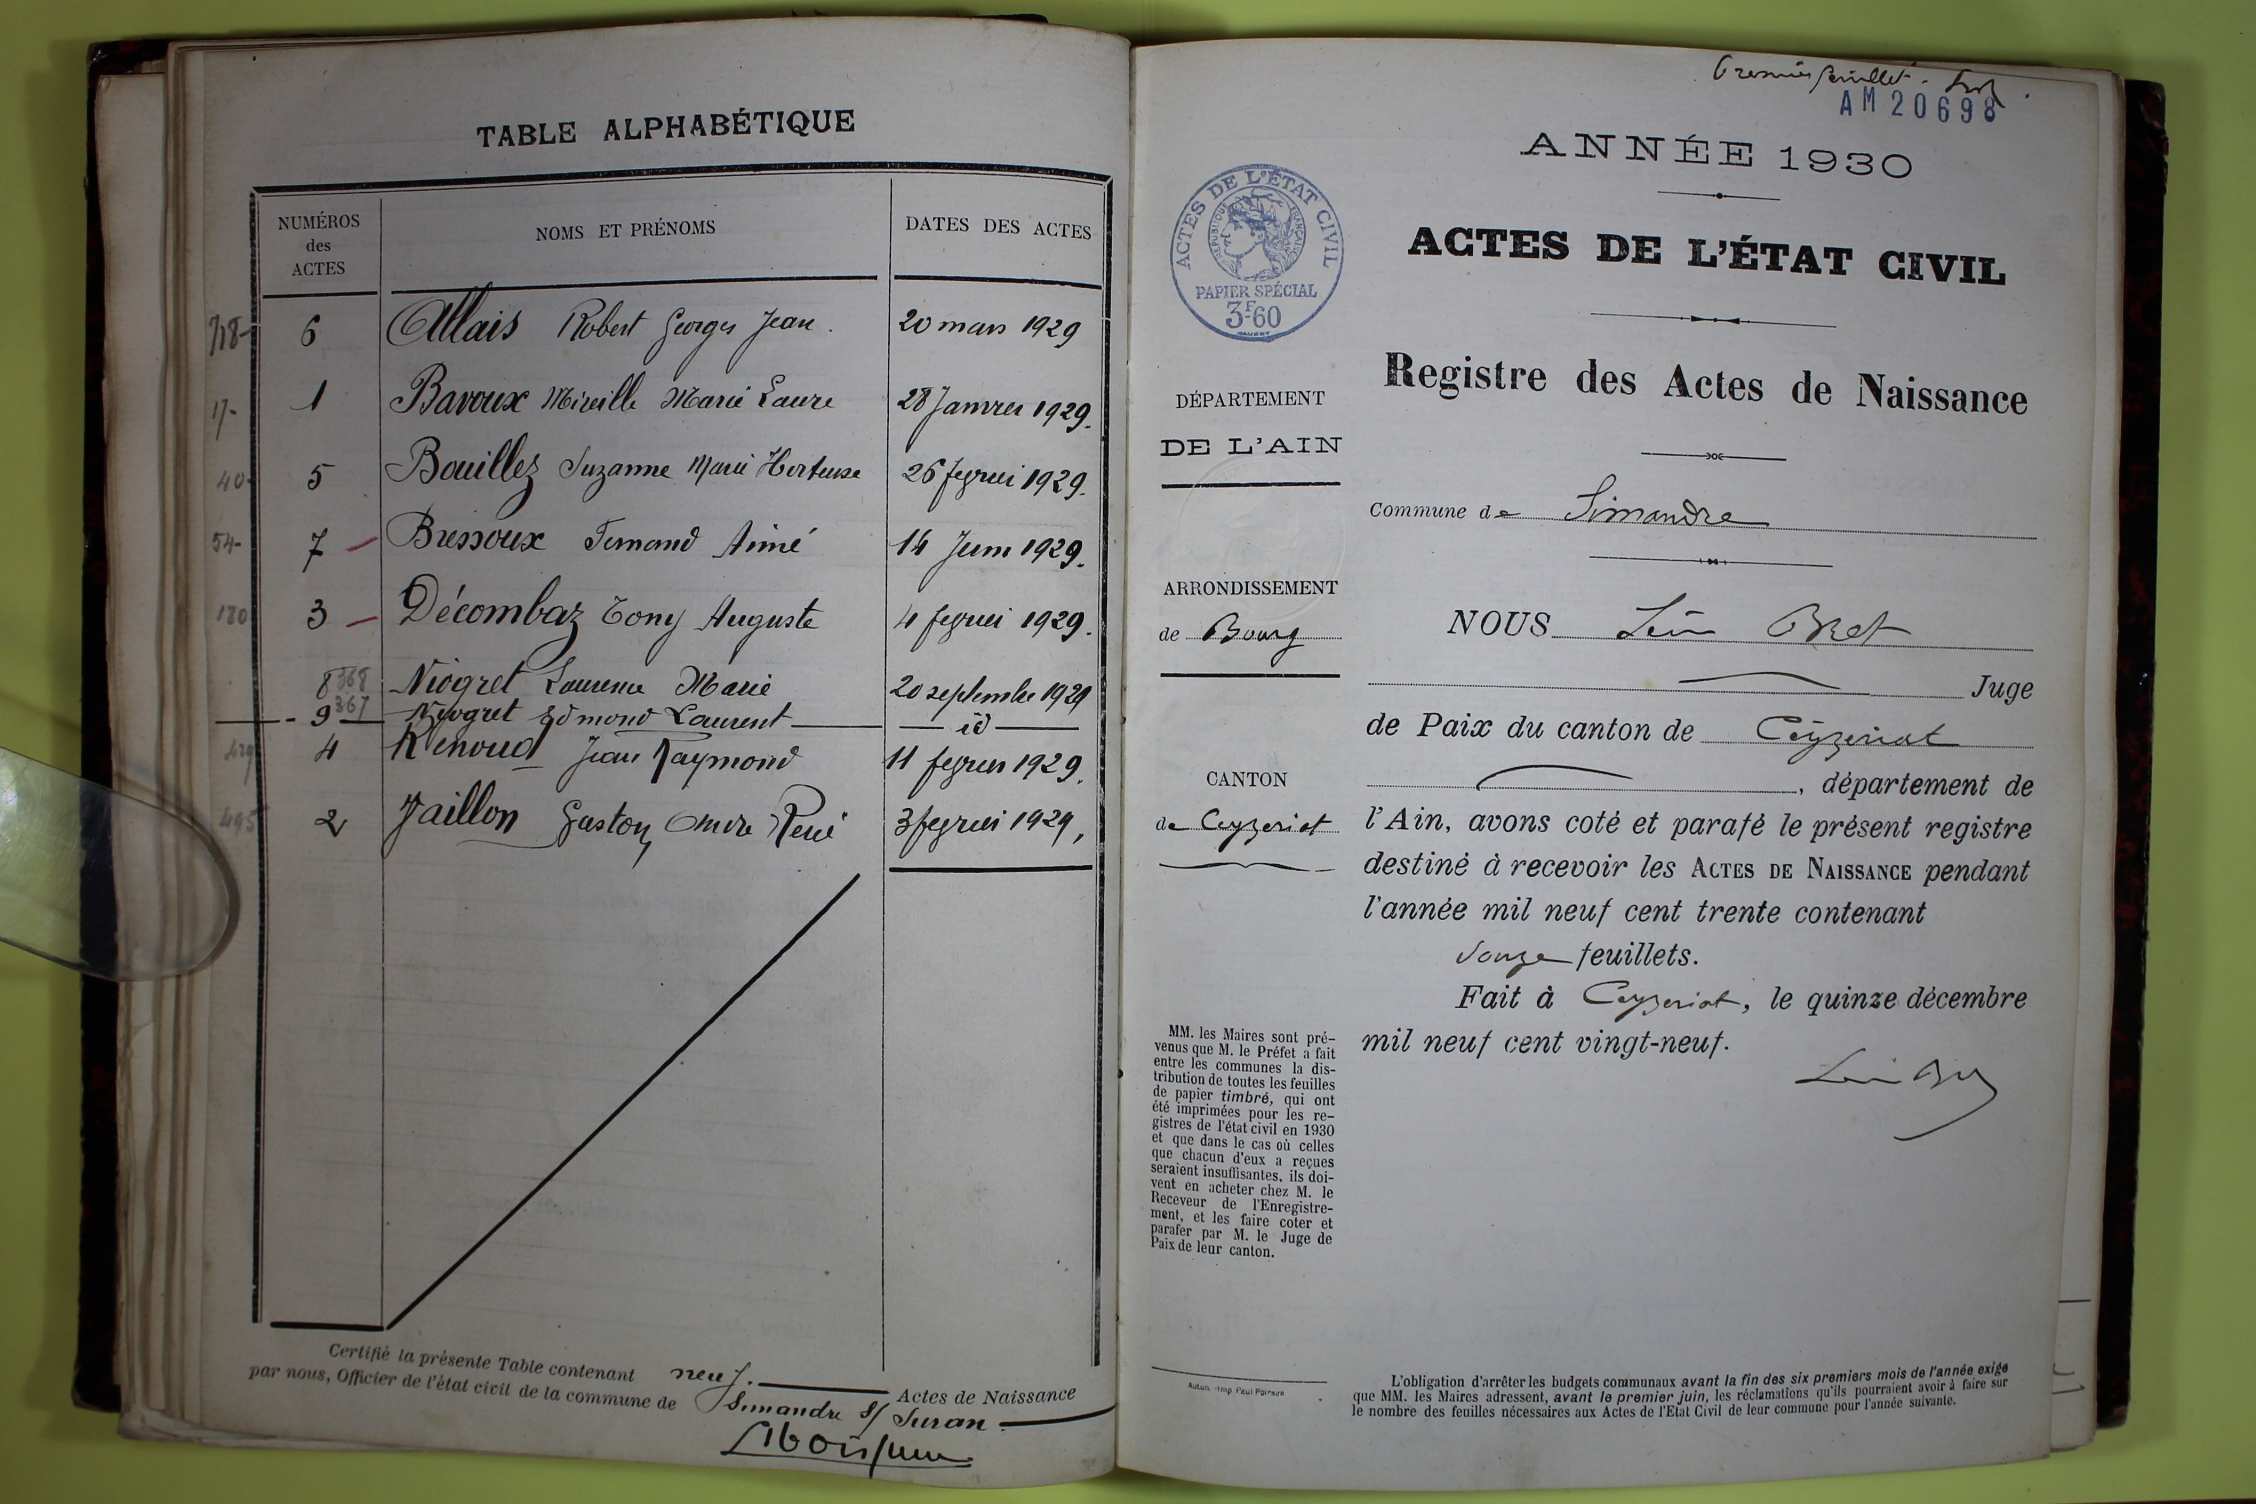 TABLE ALPHABÉTIQUE
NUMÉROS des ACTES
NOMS ET PRÉNOMS
DATES DES ACTES
6 Allais Robert Georges Jean. 20 mars 1929
17- 1 Bavoux Mireille Marie Laure 28 Janvier 1929.
40- 5 Bouillez Suzanne Marie Hortense 26 fevrier 1929.
54- 7 Bressoux Fernand Aimé 14 Juin 1929.
180 3 Décombaz Tony Auguste 4 fevrier 1929.
8 368 Niogret Laurence Marie 20 septembre 1929
9 367 Niogret Edmond Laurent id
4 Renoud Jean Raymond 11 fevrier 1929.
495 2 Vaillon Gaston André René 3 fevrier 1929,
Certifié la présente Table contenant neuf. Actes de Naissance
par nous, Officier de l'état civil de la commune de Simandre s/ Suran
Premier feuillet.
AM 20698
ANNÉE 1930
ACTES DE L'ÉTAT CIVIL
RÉPUBLIQUE FRANÇAISE
PAPIER SPÉCIAL
3F60
ACTES DE L'ÉTAT CIVIL
Registre des Actes de Naissance
DÉPARTEMENT
DE L'AIN
Commune de Simandre
ARRONDISSEMENT
de Bourg
NOUS Léon Bret
Juge
de Paix du canton de Ceyzeriat
, département de
CANTON
de Ceyzeriat
l'Ain, avons coté et parafé le présent registre
destiné à recevoir les ACTES DE NAISSANCE pendant
l'année mil neuf cent trente contenant
douze feuillets.
Fait à Ceyzeriat, le quinze décembre
mil neuf cent vingt-neuf.
Léon Bret
MM. les Maires sont pré-
venus que M. le Préfet a fait
entre les communes la dis-
tribution de toutes les feuilles
de papier timbré, qui ont
été imprimées pour les re-
gistres de l'état civil en 1930
et que dans le cas où celles
que chacun d'eux a reçues
seraient insuffisantes, ils doi-
vent en acheter chez M. le
Receveur de l'Enregistre-
ment, et les faire coter et
parafer par M. le Juge de
Paix de leur canton.
Imp. Paul Poirson
L'obligation d'arrêter les budgets communaux avant la fin des six premiers mois de l'année exige
que MM. les Maires adressent, avant le premier juin, les réclamations qu'ils pourraient avoir à faire sur
le nombre des feuilles nécessaires aux Actes de l'Etat Civil de leur commune pour l'année suivante.